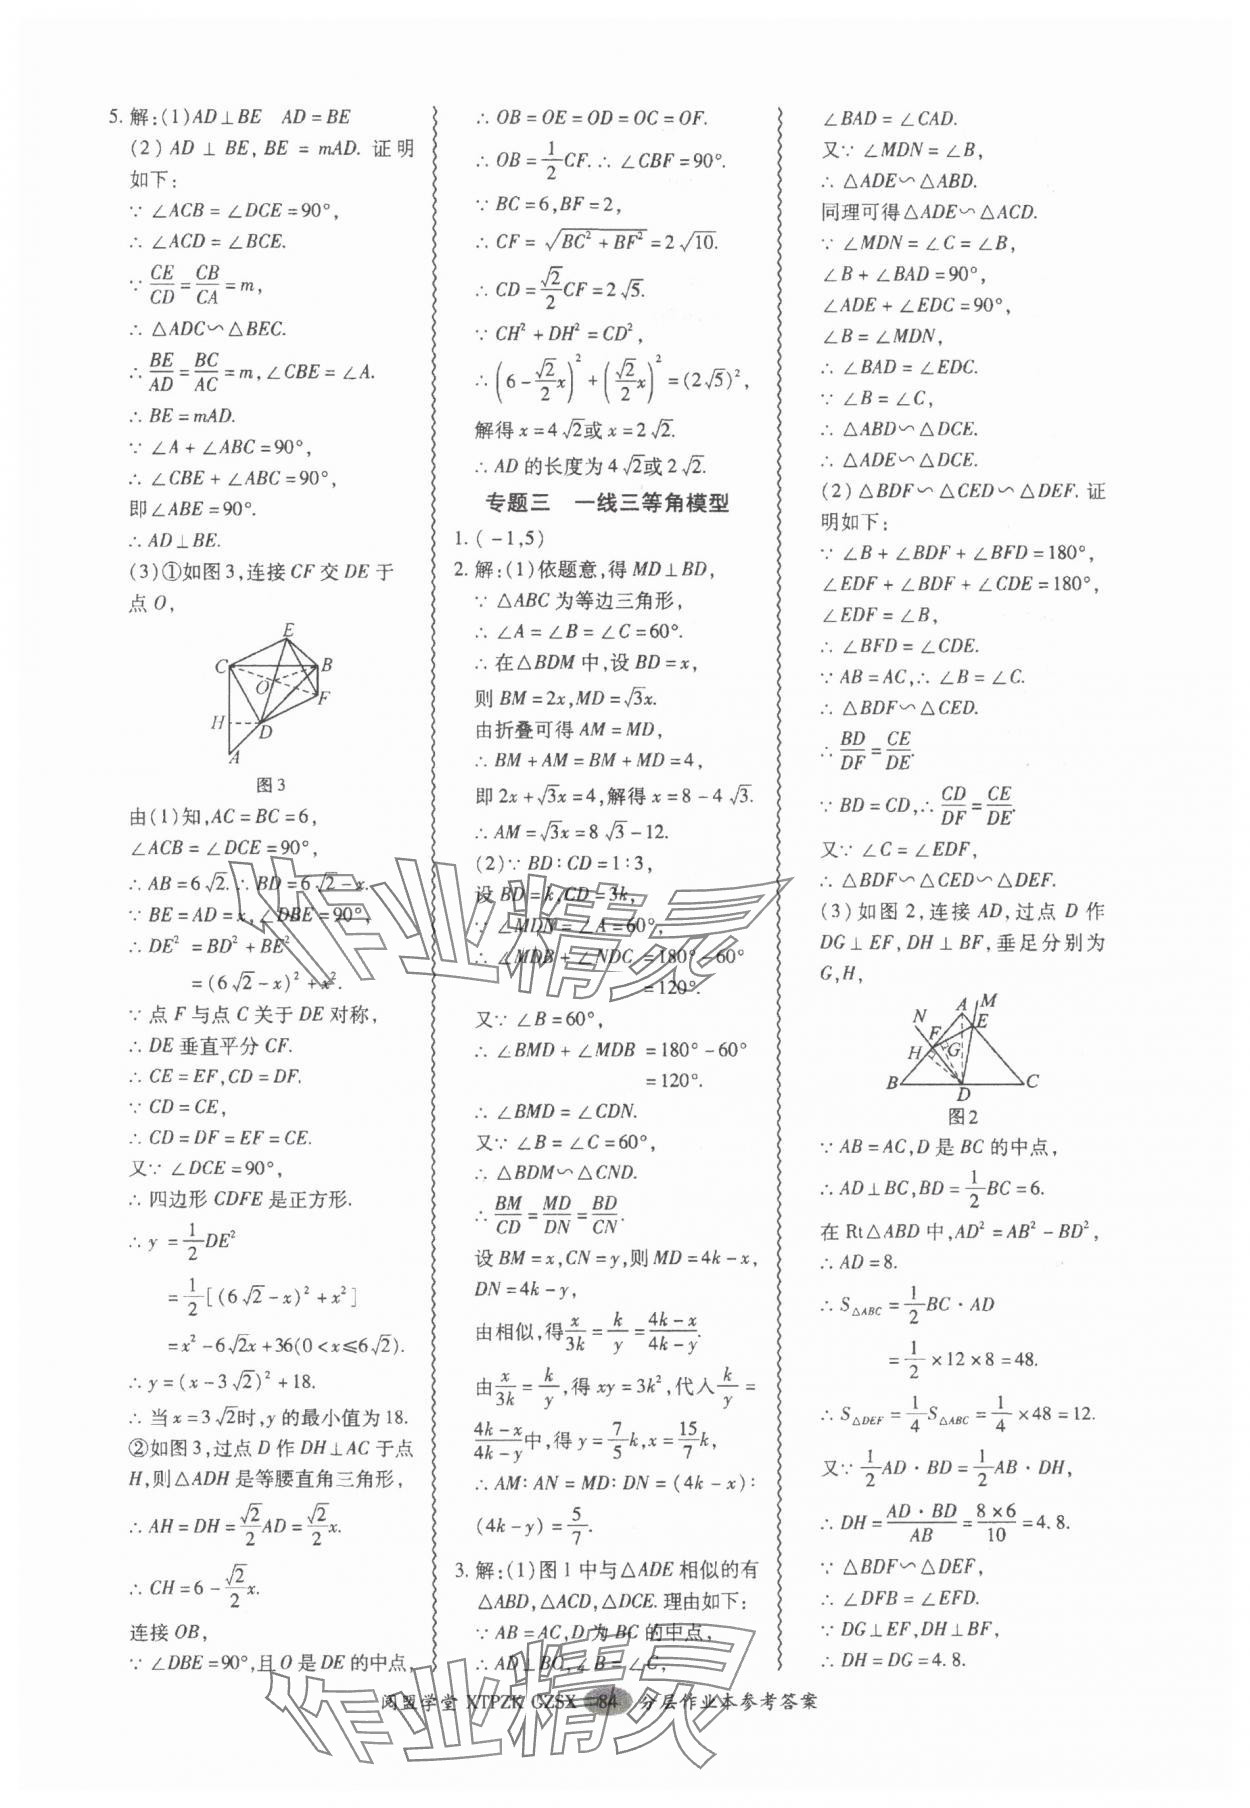 5. 解:(1)AD⊥BE　AD=BE
(2) AD ⊥ BE, BE = mAD. 证明
如下:
∵ ∠ACB = ∠DCE = 90°,
∴ ∠ACD = ∠BCE.
∵ CE/CD = CB/CA = m,
∴ △ADC∽△BEC.
∴ BE/AD = BC/AC = m, ∠CBE = ∠A.
∴ BE = mAD.
∵ ∠A + ∠ABC = 90°,
∴ ∠CBE + ∠ABC = 90°,
即∠ABE = 90°.
∴ AD⊥BE.
(3)①如图3,连接 CF 交 DE 于
点 O,
E
C
B
O
F
H
D
A
图3
由(1)知,AC = BC = 6,
∠ACB = ∠DCE = 90°,
∴ AB = 6√2. ∴ BD = 6√2 - x.
∵ BE = AD = x, ∠DBE = 90°,
∴ DE² = BD² + BE²
= (6√2 - x)² + x².
∵ 点 F 与点 C 关于 DE 对称,
∴ DE 垂直平分 CF.
∴ CE = EF, CD = DF.
∵ CD = CE,
∴ CD = DF = EF = CE.
又∵ ∠DCE = 90°,
∴ 四边形 CDFE 是正方形.
∴ y = 1/2 DE²
= 1/2 [(6√2 - x)² + x²]
= x² - 6√2x + 36(0 < x ≤ 6√2).
∴ y = (x - 3√2)² + 18.
∴ 当 x = 3√2时,y 的最小值为 18.
②如图3,过点 D 作 DH⊥AC 于点
H,则△ADH 是等腰直角三角形,
∴ AH = DH = √2/2 AD = √2/2 x.
∴ CH = 6 - √2/2 x.
连接 OB,
∵ ∠DBE = 90°,且 O 是 DE 的中点,
∴ OB = OE = OD = OC = OF.
∴ OB = 1/2 CF. ∴ ∠CBF = 90°.
∵ BC = 6, BF = 2,
∴ CF = √(BC² + BF²) = 2√10.
∴ CD = √2/2 CF = 2√5.
∵ CH² + DH² = CD²,
∴ (6 - √2/2 x)² + (√2/2 x)² = (2√5)²,
解得 x = 4√2或 x = 2√2.
∴ AD 的长度为 4√2或 2√2.
专题三　一线三等角模型
1. (-1,5)
2. 解:(1)依题意,得 MD⊥BD,
∵ △ABC 为等边三角形,
∴ ∠A = ∠B = ∠C = 60°.
∴ 在△BDM 中,设 BD = x,
则 BM = 2x, MD = √3x.
由折叠可得 AM = MD,
∴ BM + AM = BM + MD = 4,
即 2x + √3x = 4,解得 x = 8 - 4√3.
∴ AM = √3x = 8√3 - 12.
(2)∵ BD∶CD = 1∶3,
设 BD = k, CD = 3k,
∵ ∠MDN = ∠A = 60°,
∴ ∠MDB + ∠NDC = 180° - 60°
= 120°.
又∵ ∠B = 60°,
∴ ∠BMD + ∠MDB = 180° - 60°
= 120°.
∴ ∠BMD = ∠CDN.
又∵ ∠B = ∠C = 60°,
∴ △BDM∽△CND.
∴ BM/CD = MD/DN = BD/CN.
设 BM = x, CN = y,则 MD = 4k - x,
DN = 4k - y,
由相似,得 x/3k = k/y = (4k - x)/(4k - y).
由 x/3k = k/y,得 xy = 3k²,代入 k/y =
(4k - x)/(4k - y)中,得 y = 7/5 k, x = 15/7 k,
∴ AM∶AN = MD∶DN = (4k - x)∶
(4k - y) = 5/7.
3. 解:(1)图1中与△ADE 相似的有
△ABD, △ACD, △DCE. 理由如下:
∵ AB = AC, D 为 BC 的中点,
∴ AD⊥BC, ∠B = ∠C,
∠BAD = ∠CAD.
又∵ ∠MDN = ∠B,
∴ △ADE∽△ABD.
同理可得△ADE∽△ACD.
∵ ∠MDN = ∠C = ∠B,
∠B + ∠BAD = 90°,
∠ADE + ∠EDC = 90°,
∠B = ∠MDN,
∴ ∠BAD = ∠EDC.
∵ ∠B = ∠C,
∴ △ABD∽△DCE.
∴ △ADE∽△DCE.
(2) △BDF∽△CED∽△DEF. 证
明如下:
∵ ∠B + ∠BDF + ∠BFD = 180°,
∠EDF + ∠BDF + ∠CDE = 180°,
∠EDF = ∠B,
∴ ∠BFD = ∠CDE.
∵ AB = AC, ∴ ∠B = ∠C.
∴ △BDF∽△CED.
∴ BD/DF = CE/DE.
∵ BD = CD, ∴ CD/DF = CE/DE.
又∵ ∠C = ∠EDF,
∴ △BDF∽△CED∽△DEF.
(3)如图2,连接 AD,过点 D 作
DG⊥EF, DH⊥BF,垂足分别为
G,H,
A
M
N
F
E
H
G
B
D
C
图2
∵ AB = AC, D 是 BC 的中点,
∴ AD⊥BC, BD = 1/2 BC = 6.
在 Rt△ABD 中, AD² = AB² - BD²,
∴ AD = 8.
∴ S△ABC = 1/2 BC · AD
= 1/2 × 12 × 8 = 48.
∴ S△DEF = 1/4 S△ABC = 1/4 × 48 = 12.
又∵ 1/2 AD · BD = 1/2 AB · DH,
∴ DH = (AD · BD)/AB = (8 × 6)/10 = 4.8.
∵ △BDF∽△DEF,
∴ ∠DFB = ∠EFD.
∵ DG⊥EF, DH⊥BF,
∴ DH = DG = 4.8.
阅盟学堂 XTPZK CZSX 84 分层作业本参考答案
作业精灵
作业精灵